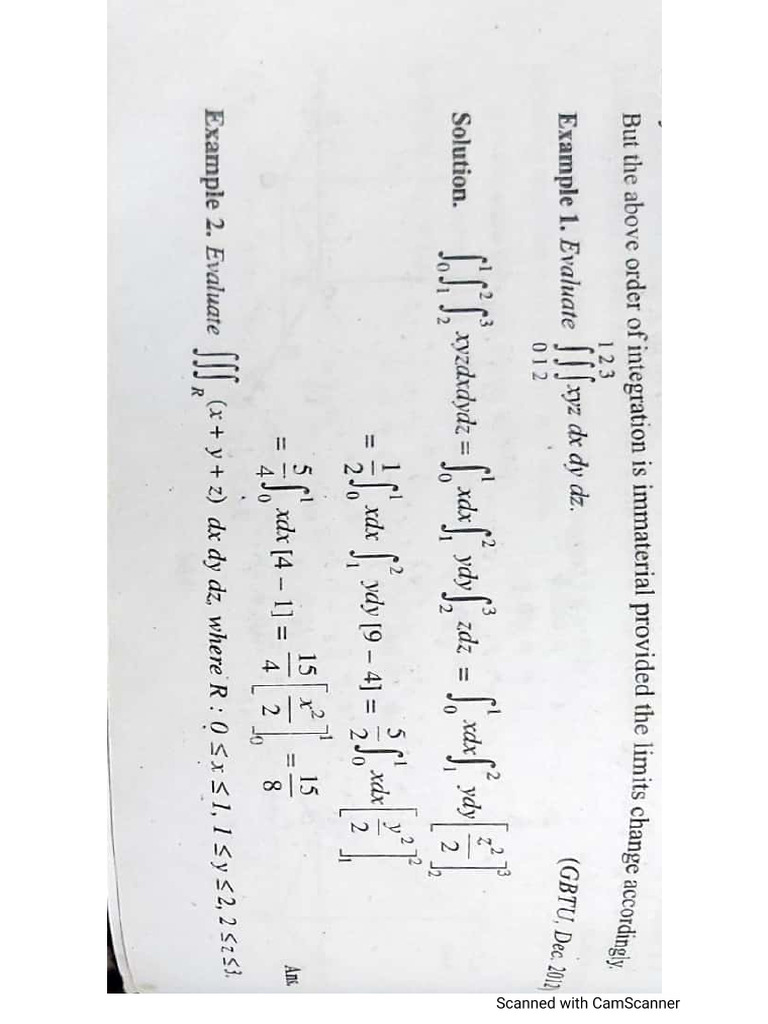 But the above order of integration is immaterial provided the limits change accordingly.
Example 1. Evaluate ∫_0^1 ∫_1^2 ∫_2^3 xyz dx dy dz. (GBTU, Dec. 2012)
Solution. ∫_0^1 ∫_1^2 ∫_2^3 xyzdxdydz = ∫_0^1 xdx ∫_1^2 ydy ∫_2^3 zdz = ∫_0^1 xdx ∫_1^2 ydy [z²/2]_2^3
= 1/2 ∫_0^1 xdx ∫_1^2 ydy [9 – 4] = 5/2 ∫_0^1 xdx [y²/2]_1^2
= 5/4 ∫_0^1 xdx [4 – 1] = 15/4 [x²/2]_0^1 = 15/8 Ans.
Example 2. Evaluate ∭_R (x + y + z) dx dy dz, where R : 0 ≤ x ≤ 1, 1 ≤ y ≤ 2, 2 ≤ z ≤ 3.
Scanned with CamScanner